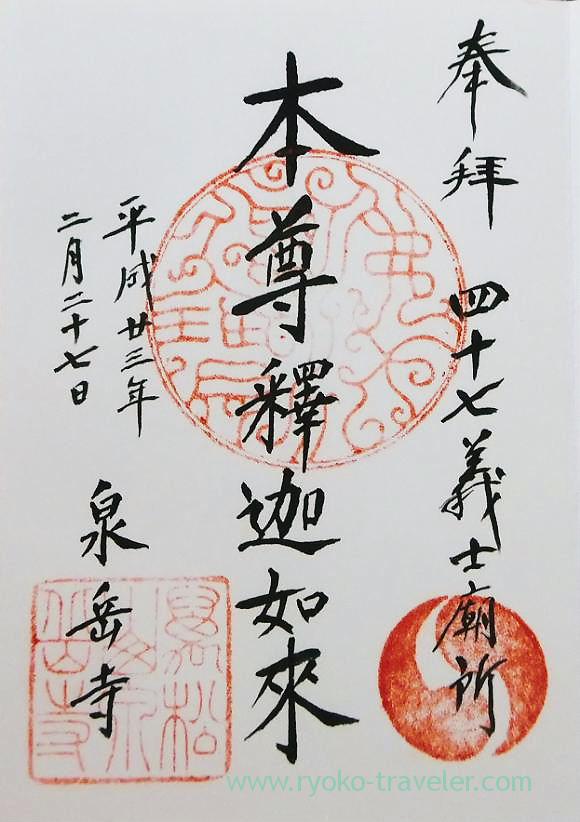 奉拜 四十七義士廟所
本尊釋迦如來
平成廿三年
二月二十七日
泉岳寺
萬松山泉岳寺
www.ryoko-traveler.com